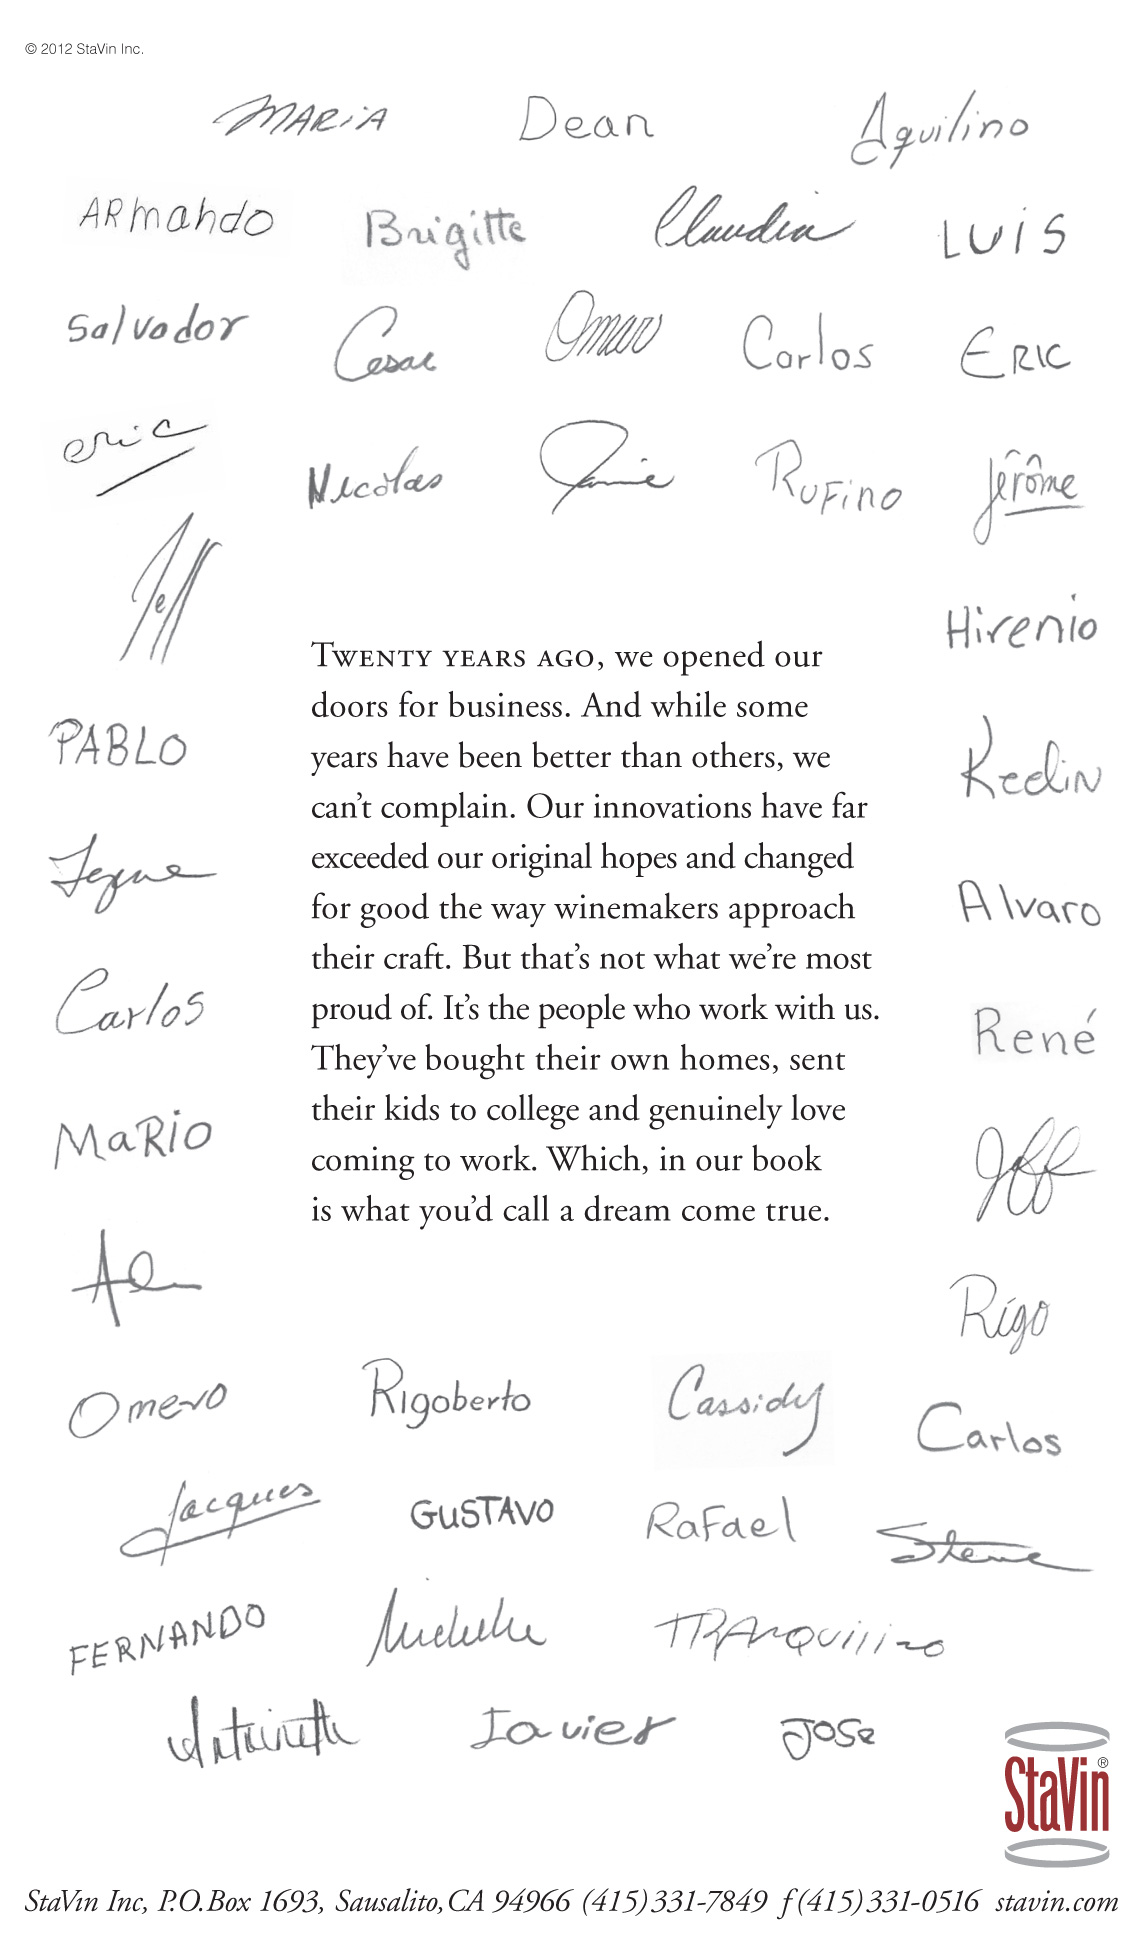 © 2012 StaVin Inc.
MARiA Dean Aquilino
ARmando Brigitte Claudia LUiS
Salvador Cesar Omar Carlos ERIC
eric Nicolas Jamie RuFino Jérôme
Jeff
Hirenio
TWENTY YEARS AGO, we opened our
doors for business. And while some
years have been better than others, we
can’t complain. Our innovations have far
exceeded our original hopes and changed
for good the way winemakers approach
their craft. But that’s not what we’re most
proud of. It’s the people who work with us.
They’ve bought their own homes, sent
their kids to college and genuinely love
coming to work. Which, in our book
is what you’d call a dream come true.
PABLO
Keelin
Alvaro
Carlos
René
MaRiO
Jeff
Rigo
Omero Rigoberto Cassidy Carlos
Jacques GuSTAVO RaFael Steve
FERNANDO Michelle TRAnquilino
Antoinette Javier Jose
StaVin®
StaVin Inc, P.O. Box 1693, Sausalito, CA 94966 (415) 331-7849 f (415) 331-0516 stavin.com